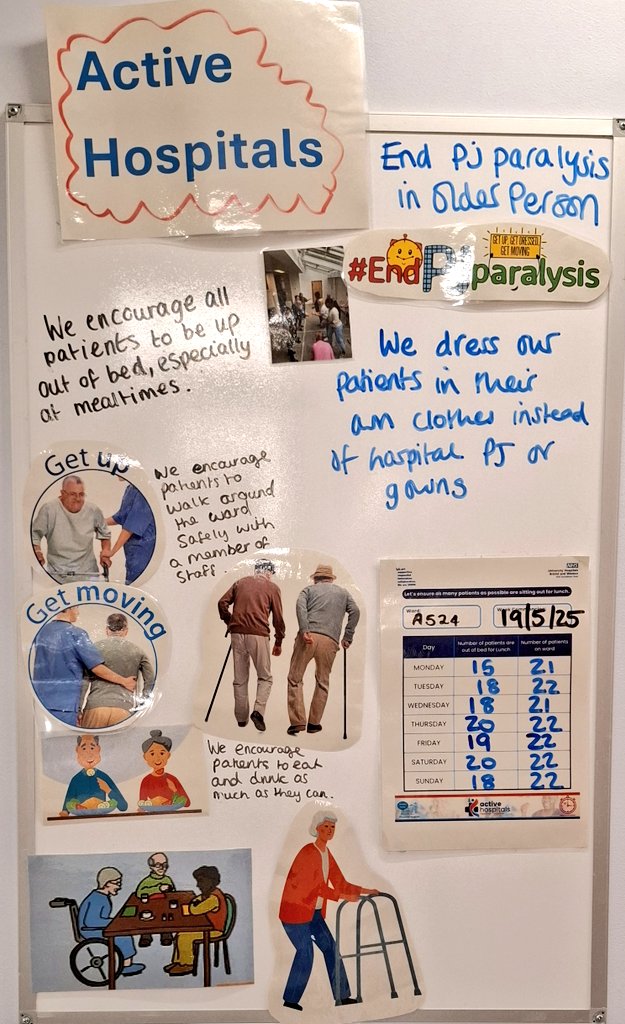 Active
Hospitals
End PJ paralysis
in Older Person
GET UP, GET DRESSED,
GET MOVING
#EndPJparalysis
We encourage all
patients to be up
out of bed, especially
at mealtimes.
We dress our
patients in their
own clothes instead
of hospital PJ or
gowns
Get up
We encourage
patients to
walk around
the ward
safely with
a member of
staff.
Get moving
We encourage
patients to eat
and drink as
much as they can.
NHS
University Hospitals
Bristol and Weston
Let's ensure as many patients as possible are sitting out for lunch.
Ward: A524 19/5/25
Day Number of patients are out of bed for lunch Number of patients on ward
MONDAY 15 21
TUESDAY 18 22
WEDNESDAY 18 21
THURSDAY 20 22
FRIDAY 19 22
SATURDAY 20 22
SUNDAY 18 22
active
hospitals